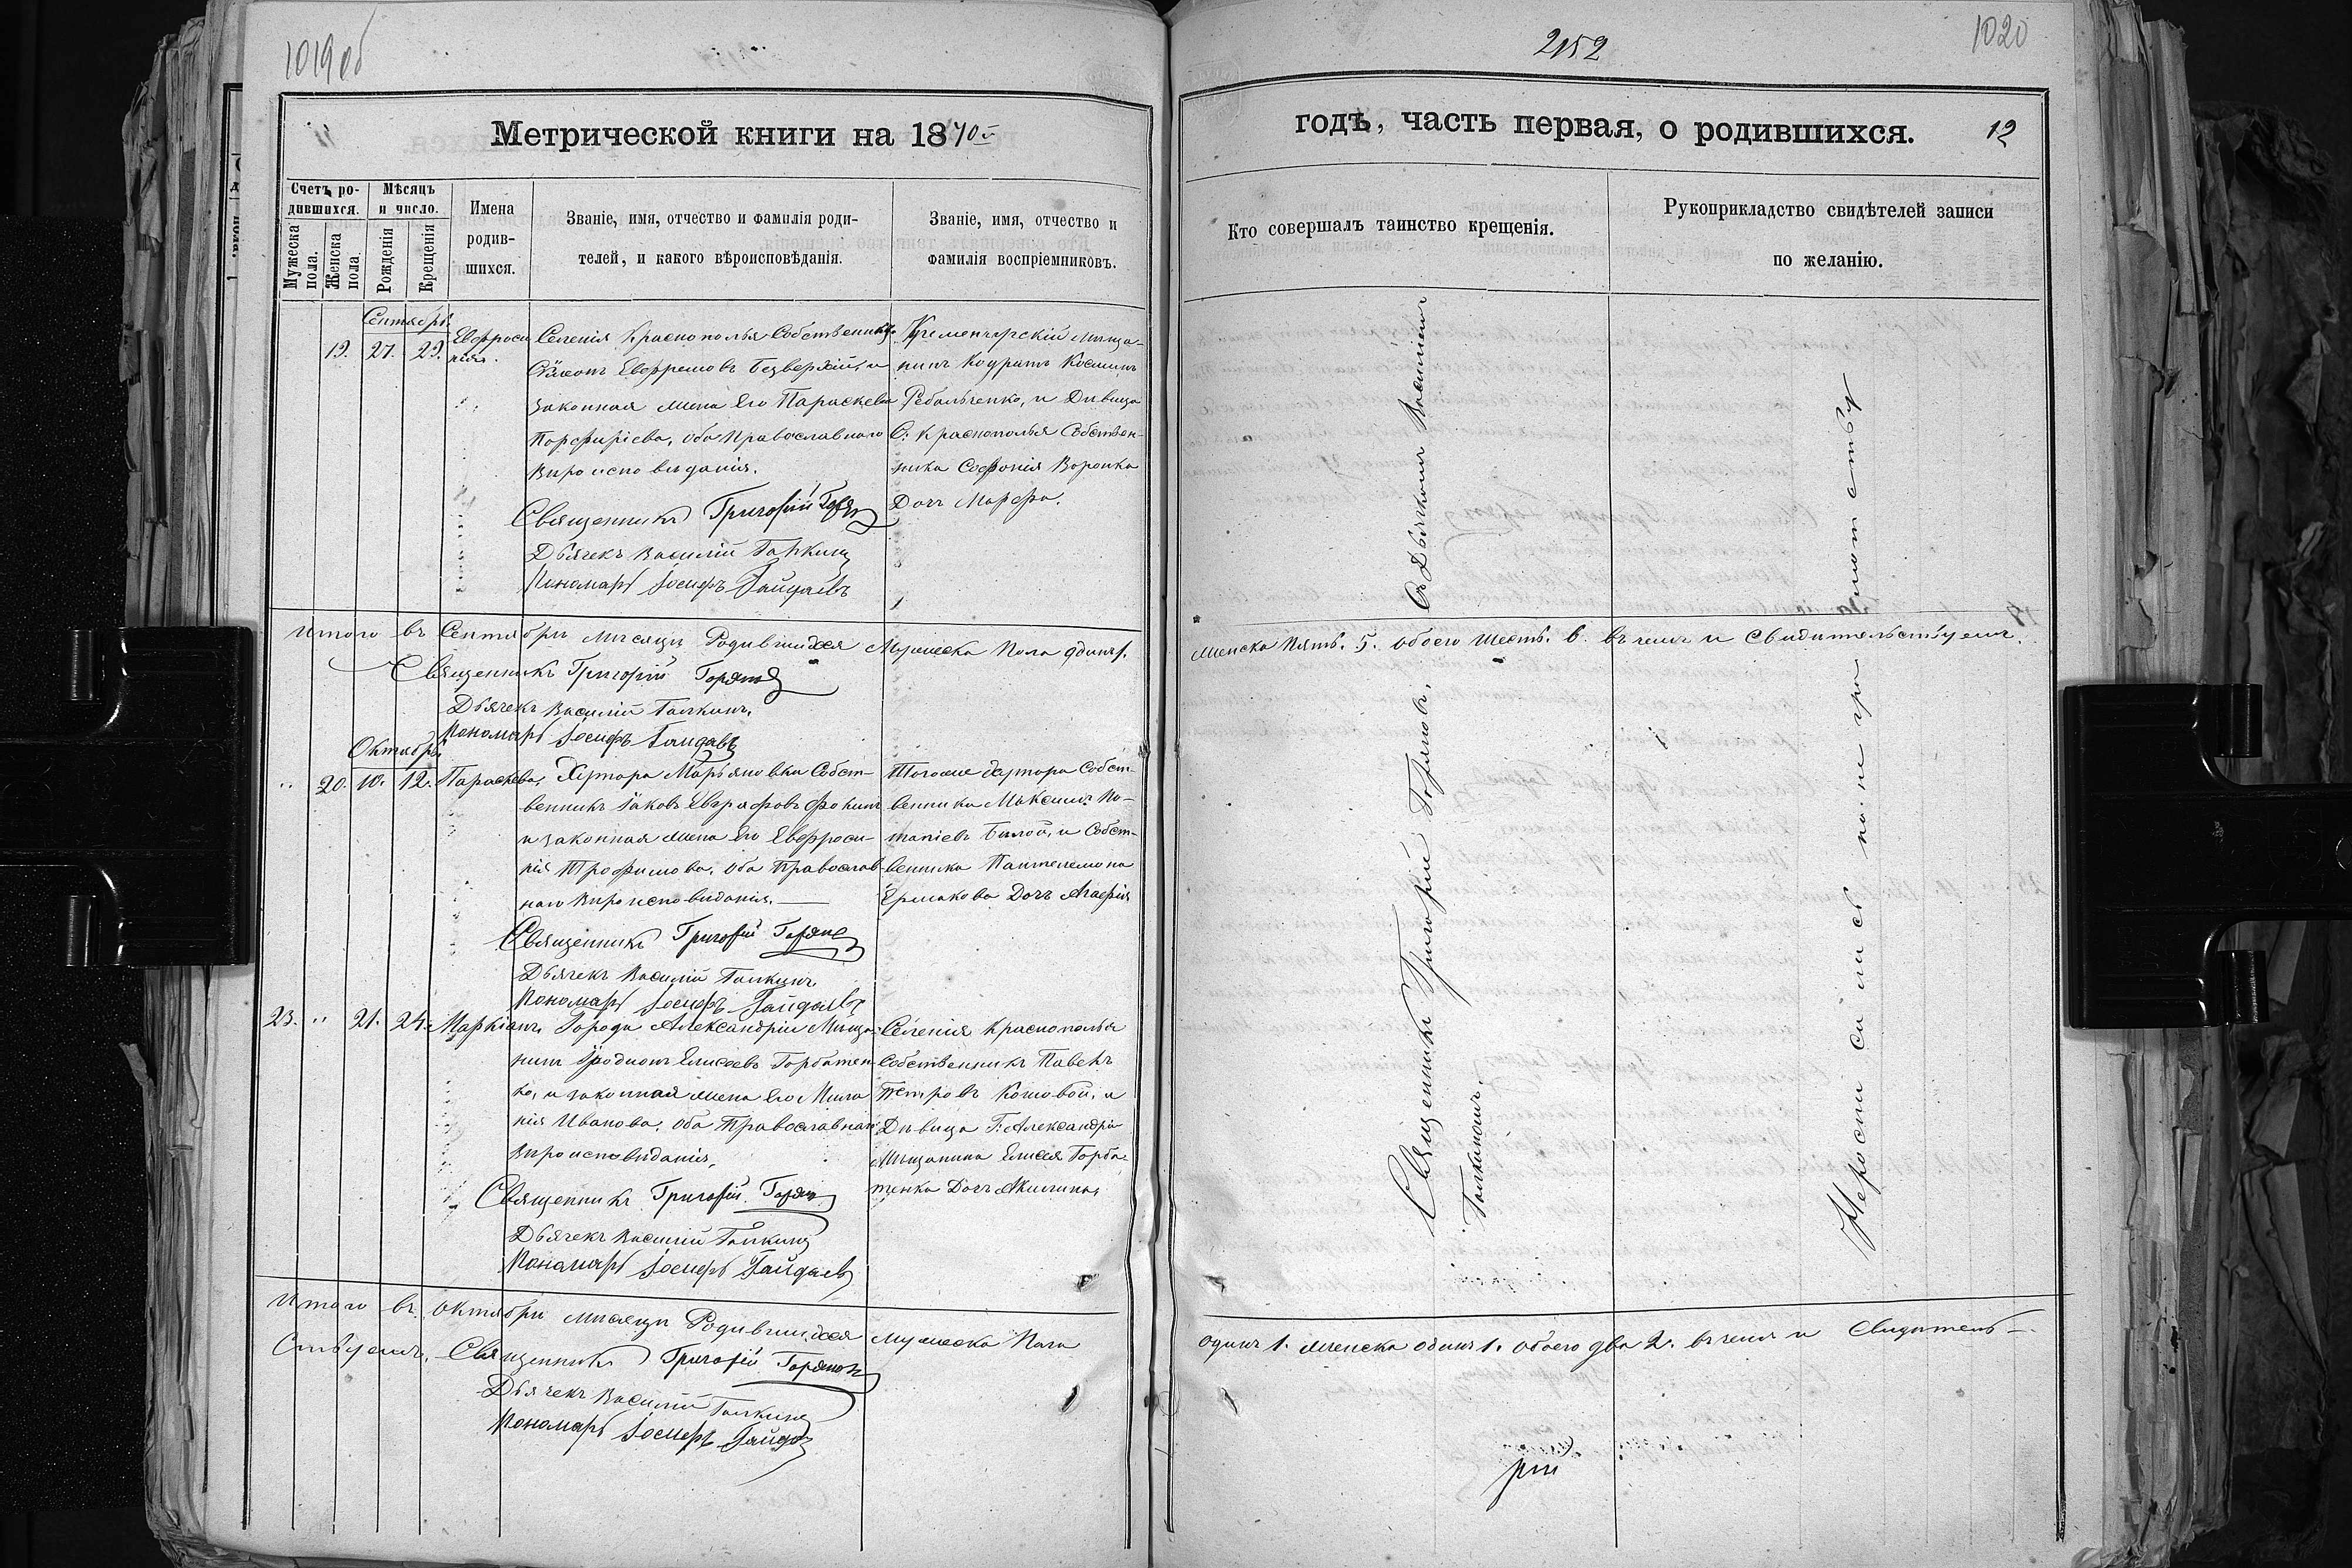 1019об
Метрической книги на 1870й
Счетъ ро-
дившихся.
Мужеска пола.
Женска пола.
Мѣсяцъ
и число.
Рожденія
Крещенія
Имена
родив-
шихся.
Званіе, имя, отчество и фамилія роди-
телей, и какого вѣроисповѣданія.
Званіе, имя, отчество и
фамилія воспріемниковъ.
Сентябрь
19. 27. 29.
Евфроси
нія.
Селенія Краснополья Собственникъ
Сѵмеонъ Евфремовъ Безверхій, и
законная жена Его Параскева
Порфиріева, оба Православнаго
Вироисповѣданія.
Священникъ Григорій
Дьячекъ Василій Галкинъ
Пономарь Іосифъ Гайдаевъ
Кременчугскій мѣща-
нинъ Кодратъ Косминъ
Ребальченко, и Дѣвица
С: Краснополья Собствен-
ника Софонія Воронка
Дочь Марфа.
Итого въ Сентябрѣ Мѣсяцѣ Родившихся Мужеска Пола одинъ 1.
Священникъ Григорій Горяновъ
Дьячекъ Василій Галкинъ.
Пономарь Іосифъ Гайдаевъ
Октябрь
20. 10. 12. Параскева.
Хутора Марьяновки Собст-
венникъ Іаковъ Евграфовъ Фокинъ
и законная жена Его Евфроси-
нія Трофимова, оба Православ-
наго Вироисповиданія.
Священникъ Григорій
Дьячекъ Василій Галкинъ
Пономарь Іосифъ Гайдаевъ
Тогоже хутора Собст-
венника Максимъ По-
тапіевъ Билой, и Собст-
венника Пантелемона
Ермакова Дочь Агафія
23. 21. 24. Маркіанъ.
Города Александріи Мѣща-
нинъ Иродионъ Елисеевъ Горбатен-
ко, и законная жена Его Мила-
нія Иванова, оба Православнаго
Вироисповиданія,
Священникъ Григорій
Дьячекъ Василій Галкинъ
Пономарь Іосифъ Гайдаевъ
Селенія Краснополья
Собственникъ Павелъ
Петровъ Кошовой, и
Дѣвица Г: Александріи
Мѣщанина Елисея Горба-
тенка Дочь Акилина,
Итого въ Октябрѣ мѣсяцѣ Родившихся мужеска Пола
ствуемъ, Священникъ Григорій Горяновъ
Дьячекъ Василій Галкинъ
Пономарь Іосифъ
2152
1020
годѣ, часть первая, о родившихся.
12
Кто совершалъ таинство крещенія.
Рукоприкладство свидѣтелей записи
по желанію.
Священникъ Григорій Горяновъ, Съ Дьячкомъ Василіемъ
Галкинымъ.
женска Пять. 5. обоего Шесть. 6. въ чемъ и Свидительствуемъ.
одинъ 1. женска одинъ 1. обоего два 2. въ чемъ и Свидитель-